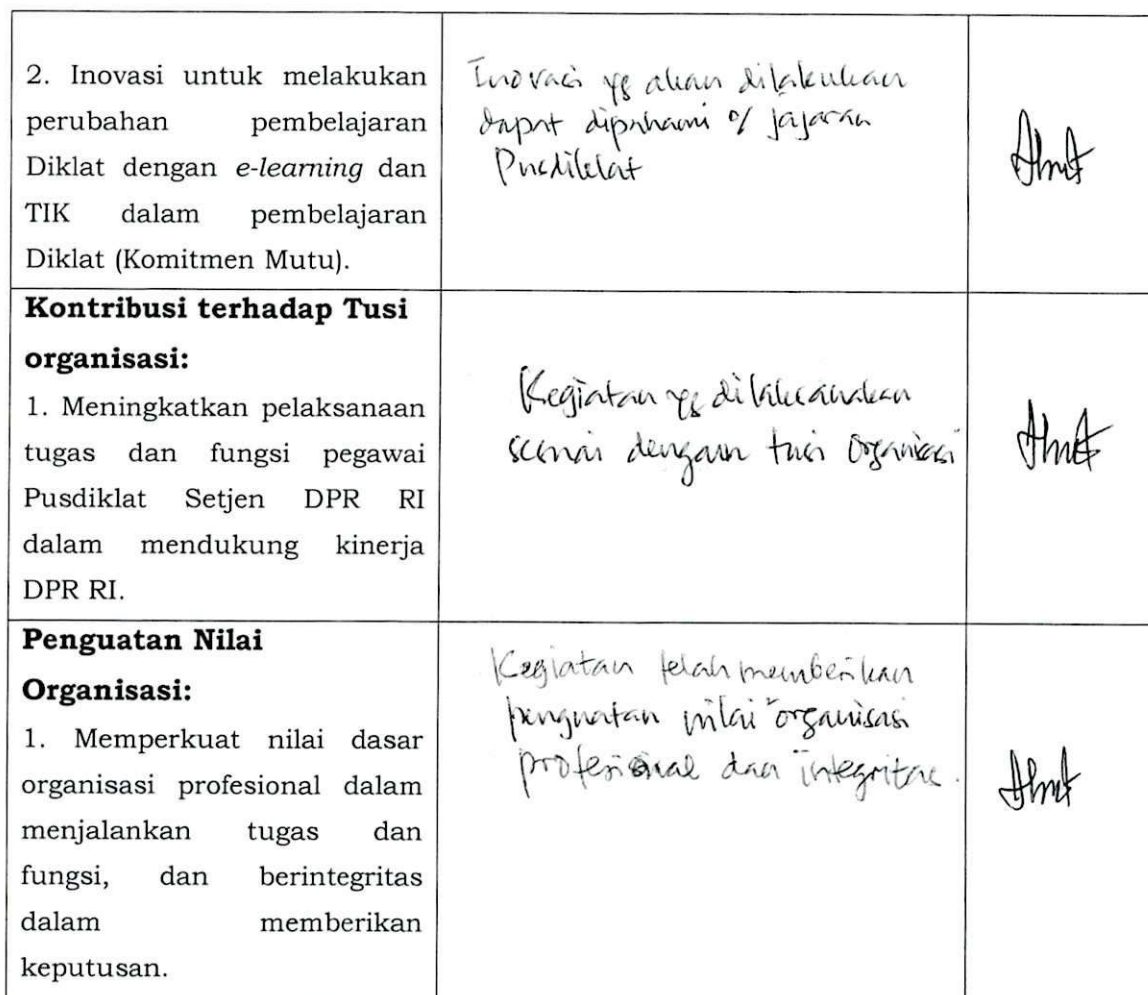 2. Inovasi untuk melakukan
perubahan pembelajaran
Diklat dengan e-learning dan
TIK dalam pembelajaran
Diklat (Komitmen Mutu).
Inovasi yg akan dilakukan
dapat dipahami o/ jajaran
Pusdiklat
Kontribusi terhadap Tusi
organisasi:
1. Meningkatkan pelaksanaan
tugas dan fungsi pegawai
Pusdiklat Setjen DPR RI
dalam mendukung kinerja
DPR RI.
Kegiatan yg dilaksanakan
sesuai dengan tusi organisasi
Penguatan Nilai
Organisasi:
1. Memperkuat nilai dasar
organisasi profesional dalam
menjalankan tugas dan
fungsi, dan berintegritas
dalam memberikan
keputusan.
Kegiatan telah memberikan
penguatan nilai² organisasi
profesional dan integritas.